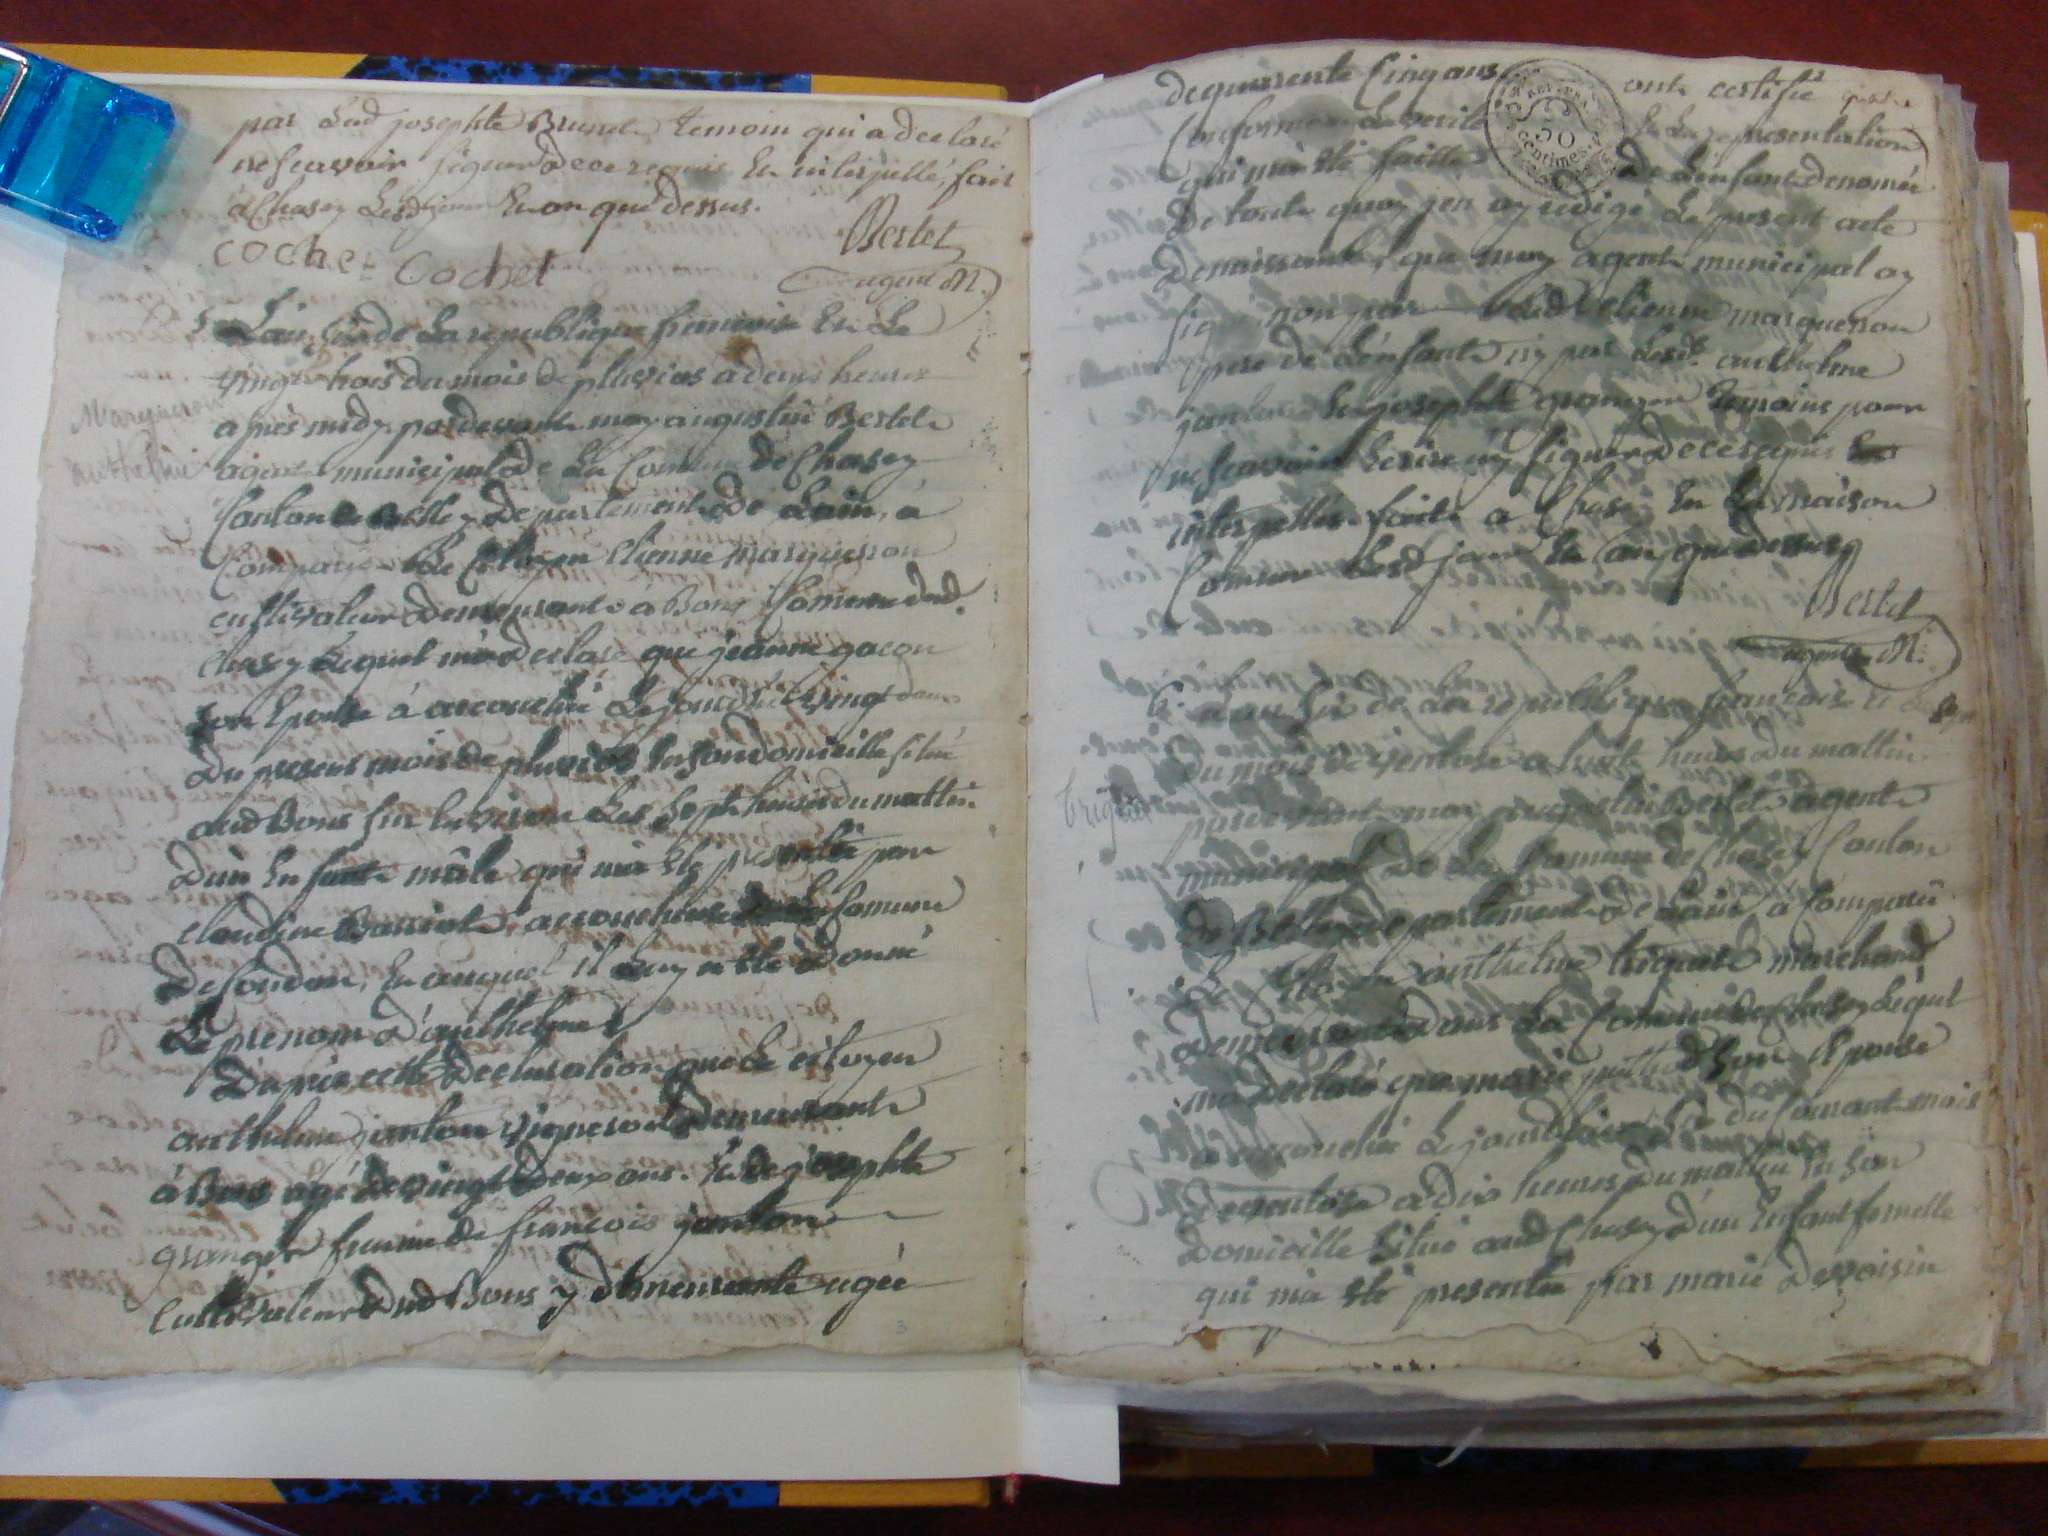 par Lad josephte Brunet temoin qui a declaré
ne scavoir signer de ce requis En interpellé, fait
à Chasey Lesd jour En an que dessus.
Bertet
coche = Cochet
agent M.
5 Lan six de La republique francoise En Le
vingt trois du mois de pluvios a deux heures
apres midy pardevant moy augustin Bertet
agent municipal de La Comune de Chasey
Marqueron
Canton de Belley Departement de Lain, à
anthelme
Comparu Le Citoyen Etienne marqueron
cultivateur Demeurant à Bons Comune dud.
Chasey Lequel m'a Declaré que jeanne gacon
son Epouse à accouchée Le jourdhier vingt deux
Du present mois de pluvios En son domicille situé
aud Bons sur Les Sept heures du mattin
D'un Enfant mâle qui m'a été presentée par
claudine accoucheuse Comune
De Condon, En auquel il Luy a été Donné
Le prenom D'anthelme
D'après cette Declaration que Le citoyen
anthelme janton vigneron Demeurant
à Bons agé de vingt deux ans. En de josephte
granger femme de francois janton
Cultivateur Dud Bons y demeurante agée
3
de quarente Cinq ans ont certifié
Conforme La verité En La representation
REP. FRA.
50
centimes.
qui m'a été faitte De L'enfant denomée
De tout quoy jen ay redigé Le present acte
De naissance, que moy agent municipal ay
signé non par Led Etienne marqueron
pere de L'enfant ny par Lesd. anthelme
janton En josephte granger temoins pour
ne scavoir Ecrire ny signer de ce requis
interpellés fait à Chasey En La maison
Comune Lesd jour En an que dessus
Bertet
agent M.
6. Lan six de La republique francoise
du mois de ventose a huit heures Du mattin
par devant moy augustin Bertet agent
municipal De La Comune de Chasey Canton
de Belley departement de Lain à Comparu
Le Citoyen anthelme triquet marchand
Demeurant dans La Comune de Chasey Lequel
m'a Declaré que marie son Epouse
a accouchée Le jourdhier du Courant mois
De ventose a dix heures du mattin En son
Domicille situé aud Chasey d'un Enfant femelle
qui m'a été presentée par marie Devoisin